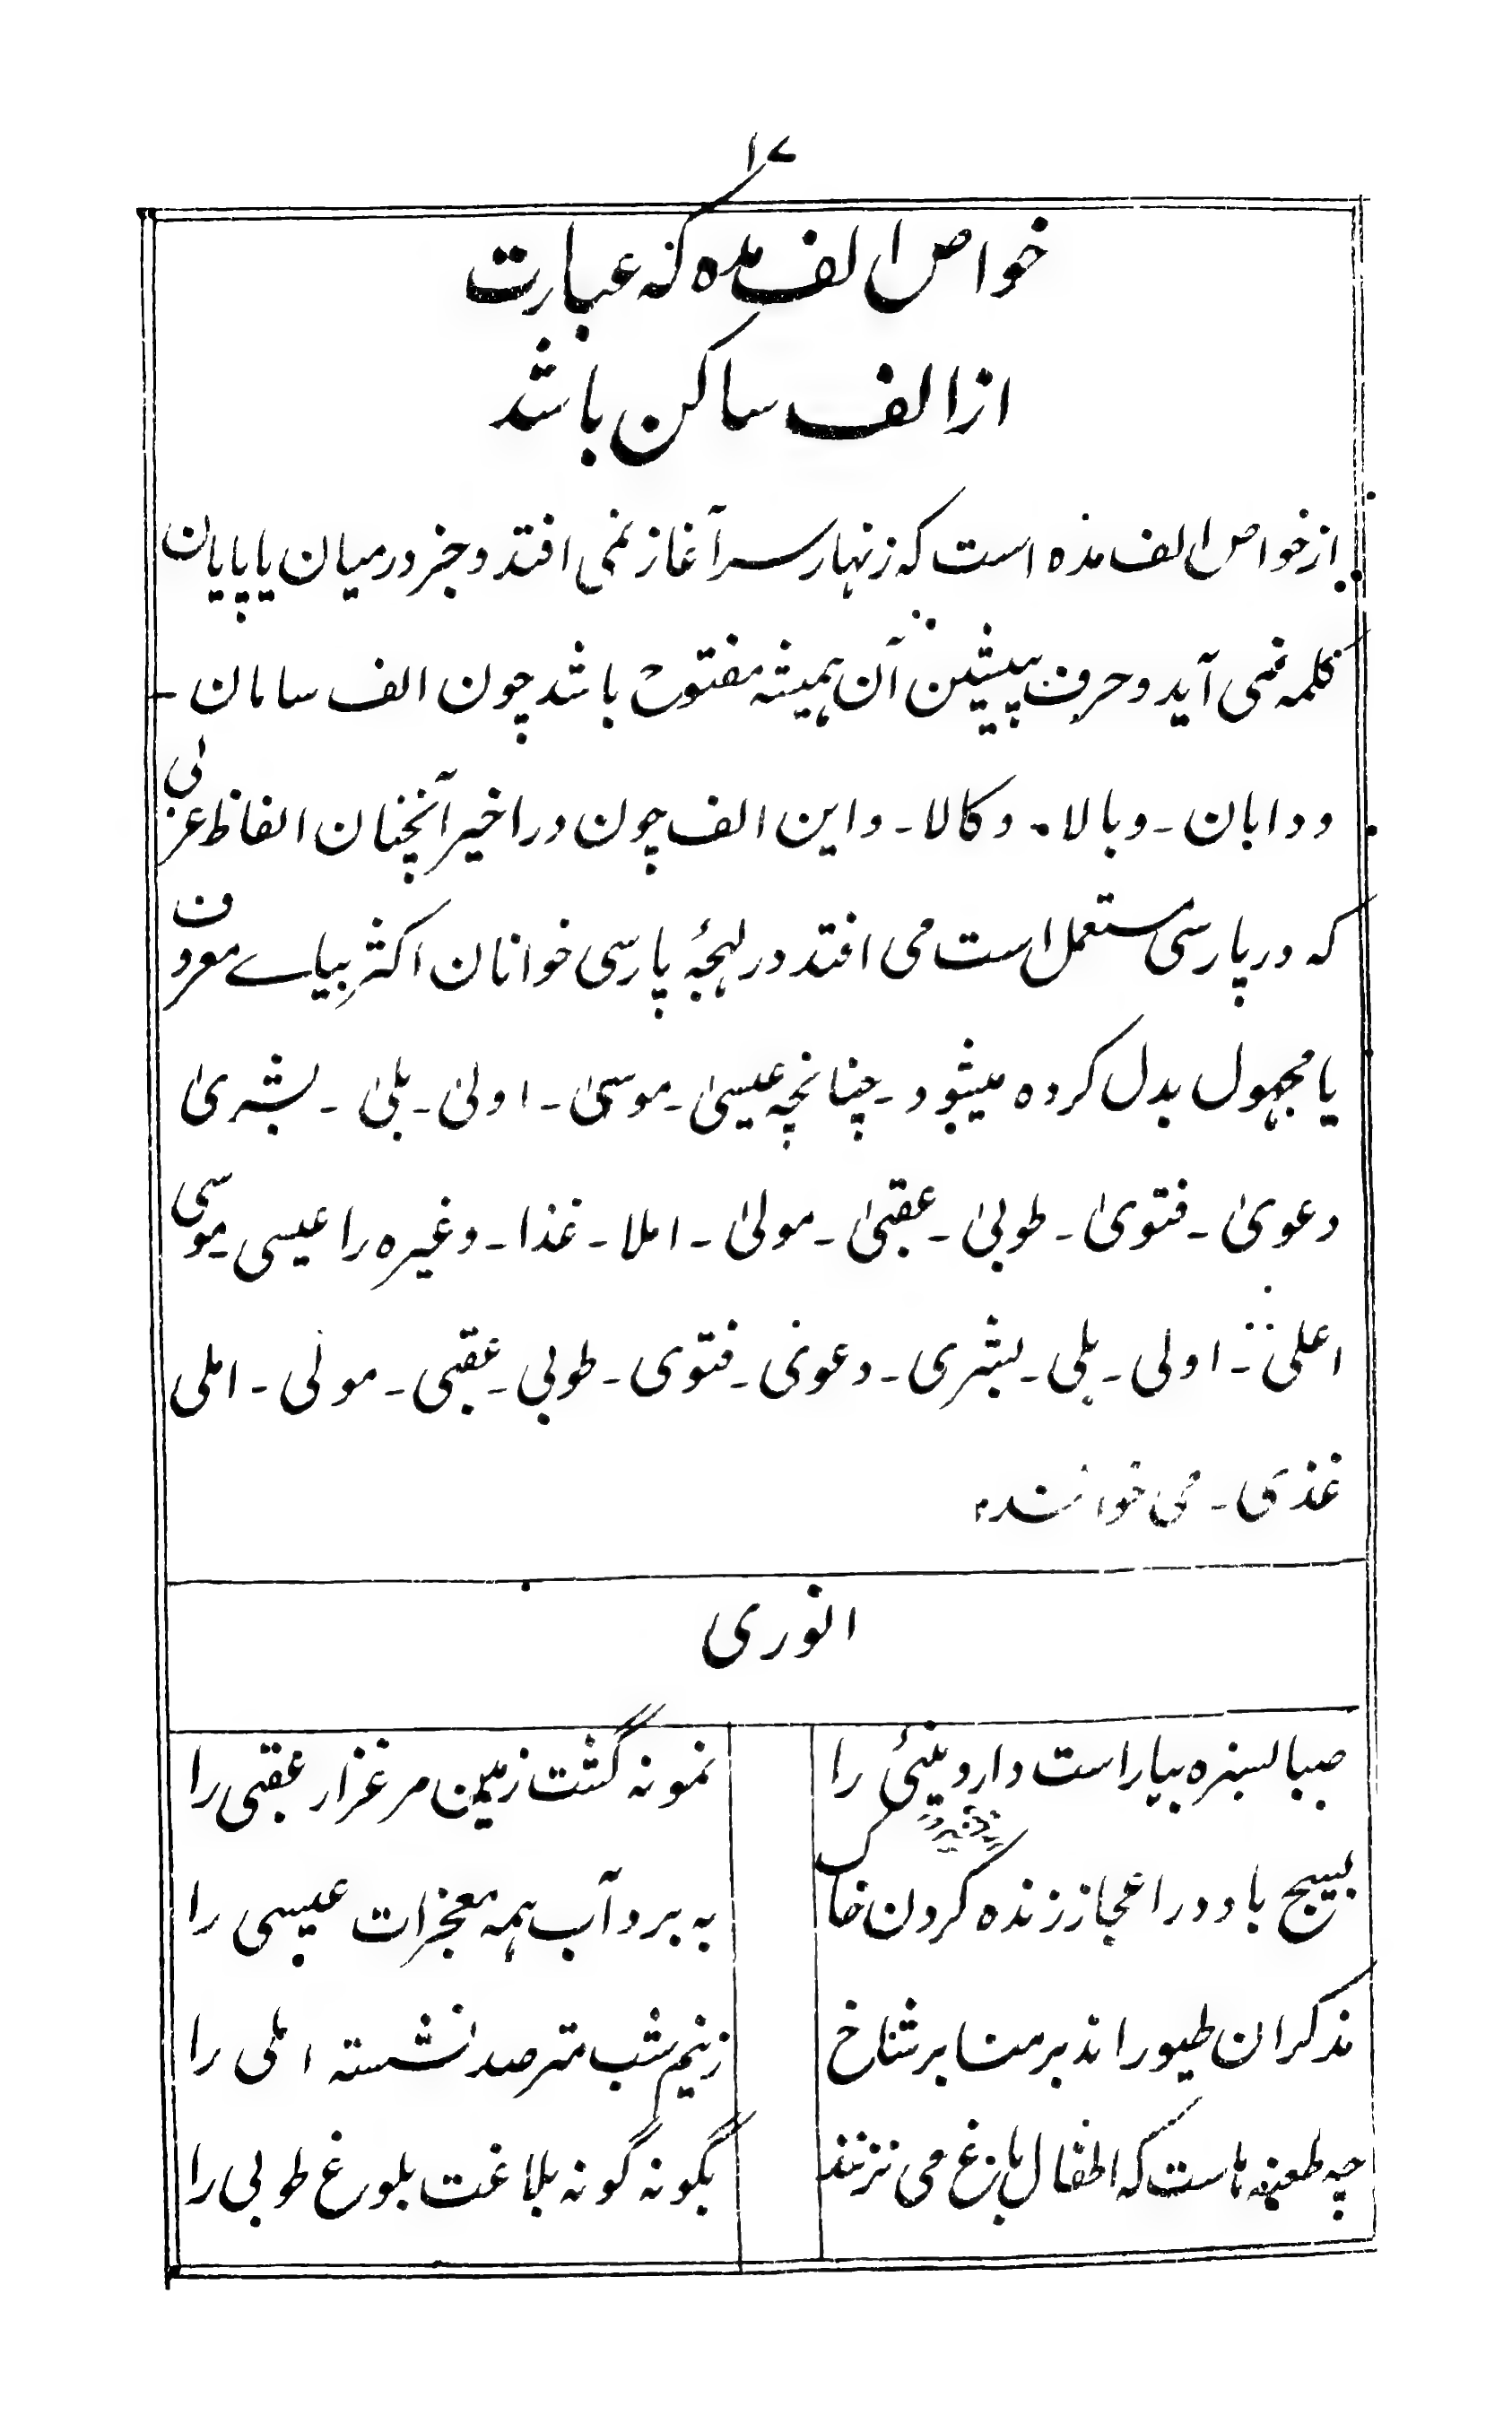 ۱۷
خواص الف مده که عبارت
از الف ساکن باشد
از خواص الف مده است که زنهار سر آغاز نمی افتد و جز در میان یا پایان
کلمه نمی آید و حرف پیشین آن همیشه مفتوح باشد چون الف سامان -
و دابان - و بالا - و کالا - و این الف چون در اخیر آنچنان الفاظ عربی
که در پارسی مستعمل است می افتد در لهجهٔ پارسی خوانان اکثر بیاے معروف
یا مجهول بدل کرده میشود - چنانچه عیسیٰ - موسیٰ - اولیٰ - بلیٰ - بشریٰ
دعویٰ - فتویٰ - طوبیٰ - عقبیٰ - مولیٰ - املا - غذا - وغیره را عیسی - موسی
اعلی - اولی - بلی - بشری - دعوی - فتوی - طوبی - عقبی - مولی - املی
غذی - می خوانند
انوری
صبا بسبزه بیاراست دار دینی را
نمونه گشت زمین مرغزار عقبی را
بسیج باد در اعجاز زنده کردن خاک
به برد آب همه معجزات عیسی را
مذکران طیوراند بر منابر شاخ
ز نیم شب مترصد نشسته املی را
چه طعنه هاست که اطفال باغ می نزنند
بگونه گونه بلاغت بلوغ طوبی را